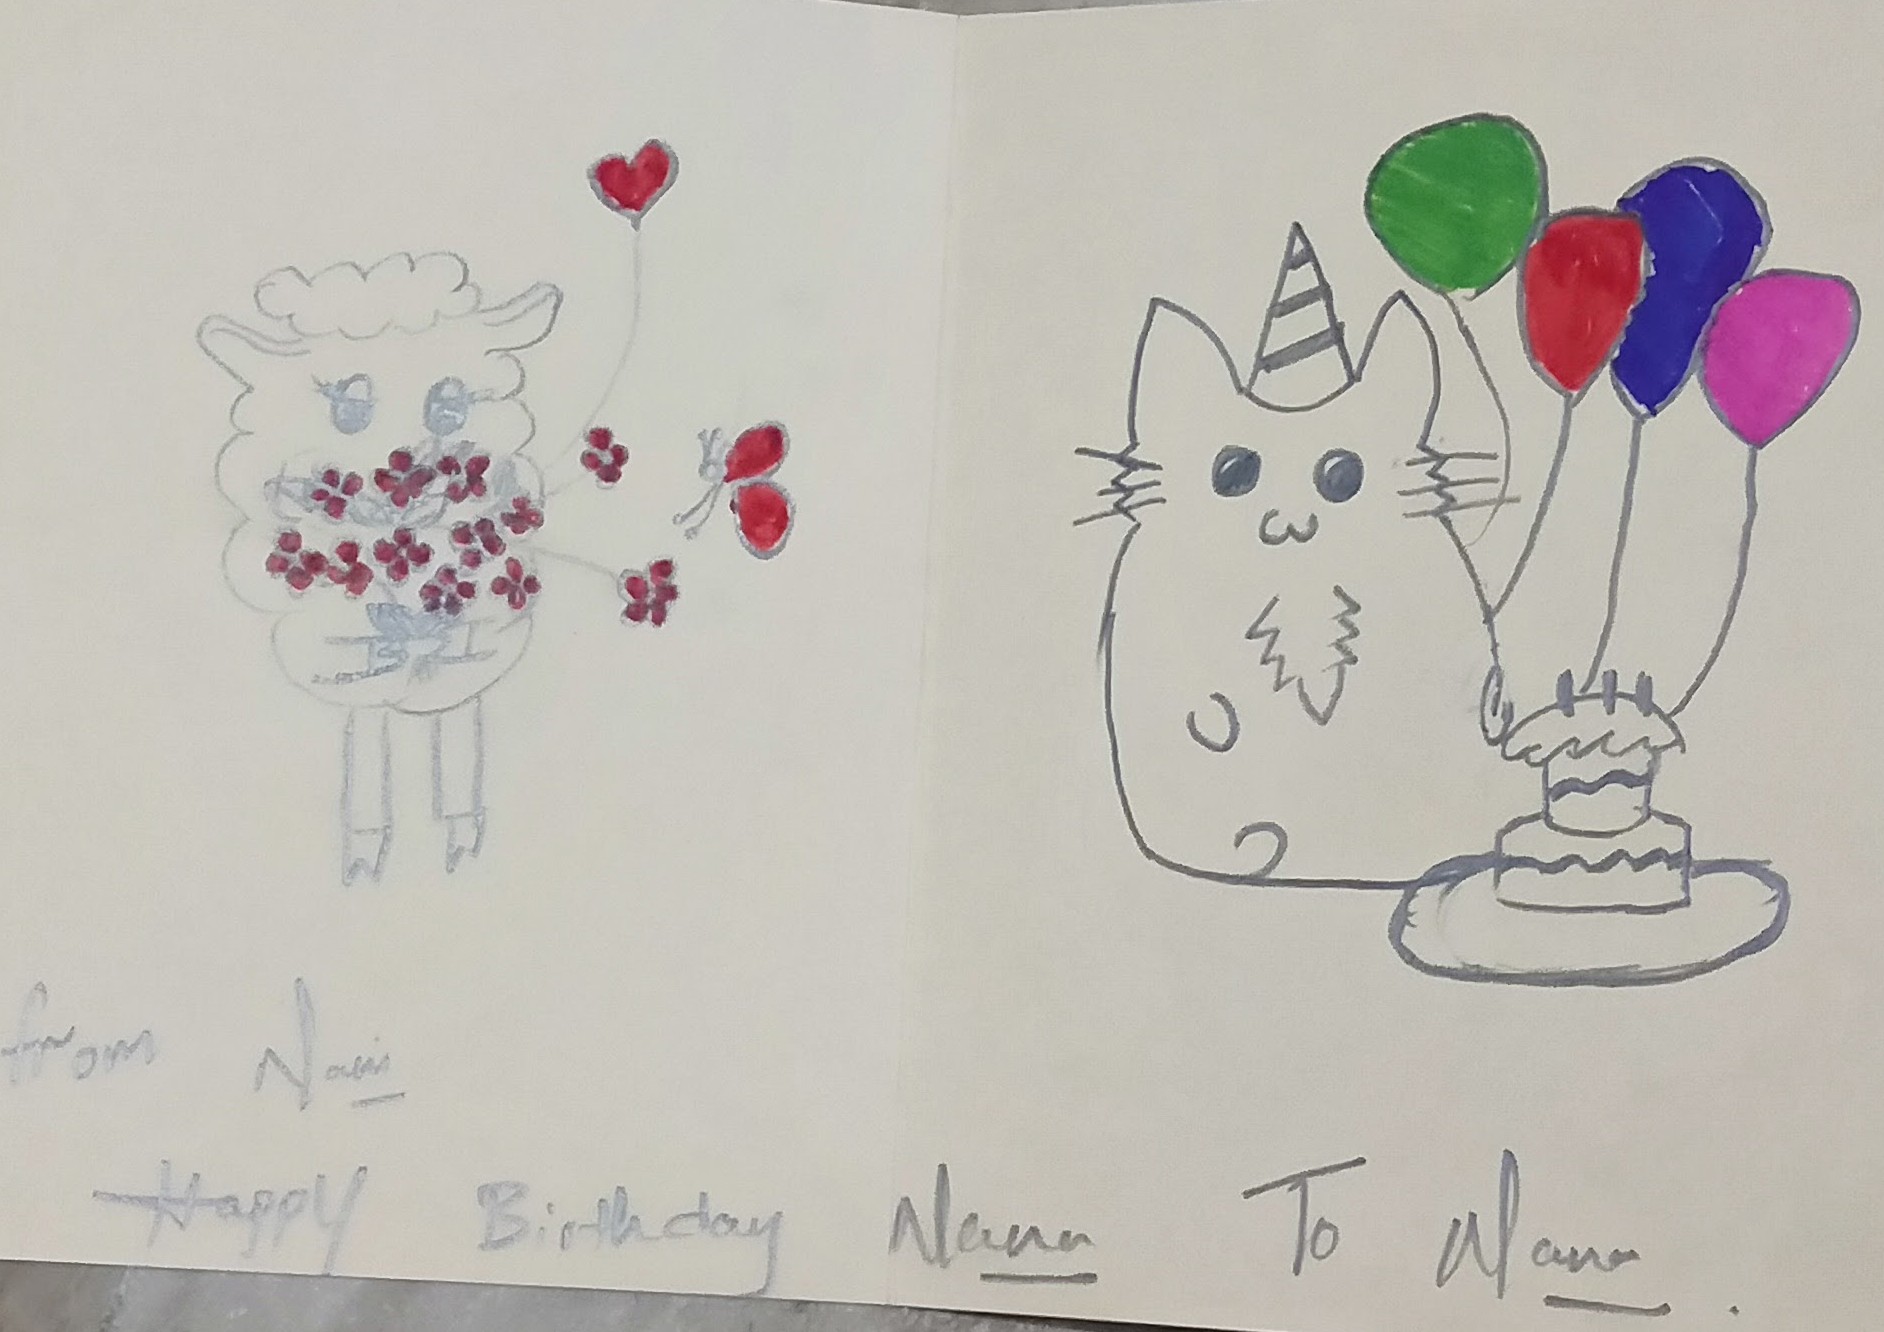 from Nani
Happy Birthday Nana To Nana.